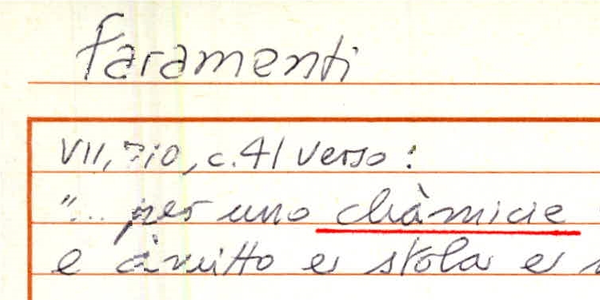 Paramenti
VII, 710, c. 41 verso:
"... per uno chàmicie
e àmitto e stola e